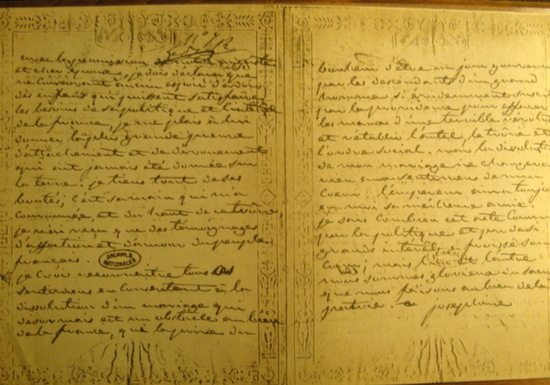 avec la permission de notre auguste
et cher époux, je dois déclarer que
ne conservant aucun espoir d'avoir
des enfans qui puissent satisfaire
les besoins de sa politique et l'intérêt
de la france, je me plais à lui
donner la plus grande preuve
d'attachement et de dévouement
qui ait jamais été donnée sur
la terre. je tiens tout de ses
bontés, c'est sa main qui m'a
couronnée, et du haut de ce trône,
je n'ai reçu que des témoignages
d'affection et d'amour du peuple
français.
ARCHIVES NATIONALES
je crois reconnoitre tous ces
sentimens en consentant à la
dissolution d'un mariage qui
désormais est un obstacle au bien
de la france, qui la prive du
bonheur d'être un jour gouvernée
par les descendants d'un grand
homme si évidemment
par la providence pour effacer
les maux d'une terrible révolution
et rétablir l'autel, le trône et
l'ordre social. mais la dissolution
de mon mariage ne changera
rien aux sentimens de mon
coeur. l'empereur aura toujours
en moi sa meilleure amie.
je sais combien cet acte
par la politique et par de si
grands intérêts a froissé son
coeur, mais l'un et l'autre
nous sommes glorieux du
que nous faisons au bien de la
patrie. josephine